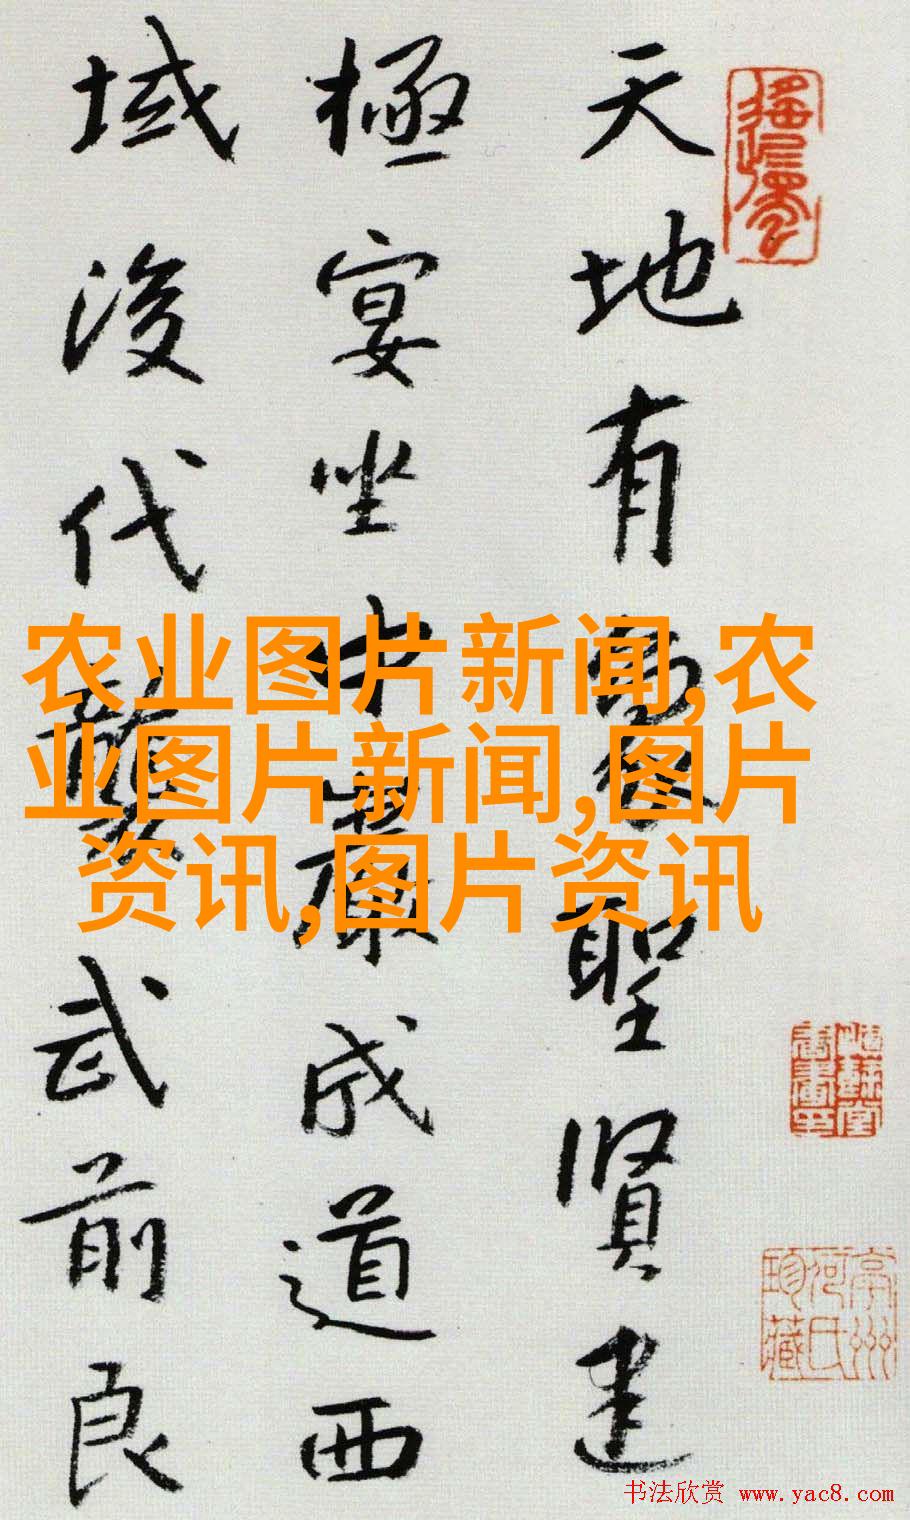 天地有靈聖賢建
極宴坐中嚴成道西
域後代襲武前良
农业图片新闻,农
业图片新闻,图片
资讯,图片资讯
亭州
河氏
珍藏
书法欣赏 www.yac8.com